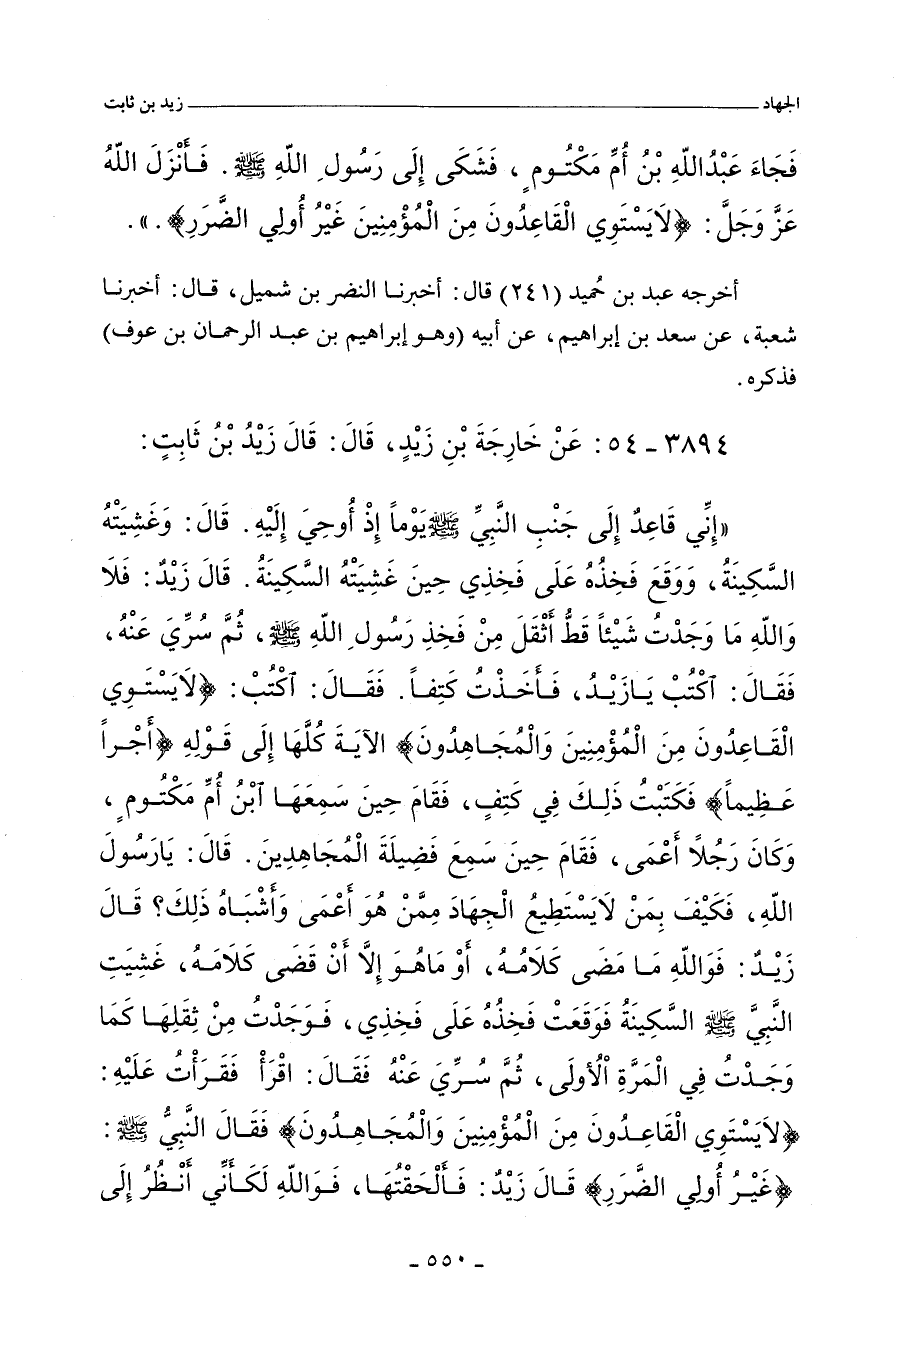 الجهاد ــــــــــــــــــــــــــــــــ زيد بن ثابت
فَجَاءَ عَبْدُاللّهِ بْنُ أُمِّ مَكْتُومٍ ، فَشَكَى إِلَى رَسُولِ اللّهِ ﷺ . فَأَنْزَلَ اللّهُ
عَزَّ وَجَلَّ : ﴿لَايَسْتَوِي الْقَاعِدُونَ مِنَ الْمُؤْمِنِينَ غَيْرُ أُولِي الضَّرَرِ﴾ . » .
أخرجه عبد بن حُميد (٢٤١) قال : أخبرنا النضر بن شميل ، قال : أخبرنا
شعبة ، عن سعد بن إبراهيم ، عن أبيه (وهو إبراهيم بن عبد الرحمان بن عوف)
فذكره .
٣٨٩٤ ـ ٥٤ : عَنْ خَارِجَةَ بْنِ زَيْدٍ ، قَالَ : قَالَ زَيْدُ بْنُ ثَابِتٍ :
«إِنِّي قَاعِدٌ إِلَى جَنْبِ النَّبِيِّ ﷺ يَوْماً إِذْ أُوحِيَ إِلَيْهِ . قَالَ : وَغَشِيَتْهُ
السَّكِينَةُ ، وَوَقَعَ فَخِذُهُ عَلَى فَخِذِي حِينَ غَشِيَتْهُ السَّكِينَةُ . قَالَ زَيْدٌ : فَلَا
وَاللّهِ مَا وَجَدْتُ شَيْئاً قَطُّ أَثْقَلَ مِنْ فَخِذِ رَسُولِ اللّهِ ﷺ ، ثُمَّ سُرِّيَ عَنْهُ ،
فَقَالَ : ٱكْتُبْ يَازَيْدُ ، فَأَخَذْتُ كَتِفاً . فَقَالَ : ٱكْتُبْ : ﴿لَايَسْتَوِي
الْقَاعِدُونَ مِنَ الْمُؤْمِنِينَ وَالْمُجَاهِدُونَ﴾ الآيَةَ كُلَّهَا إِلَى قَوْلِهِ ﴿أَجْراً
عَظِيماً﴾ فَكَتَبْتُ ذَلِكَ فِي كَتِفٍ ، فَقَامَ حِينَ سَمِعَهَا ٱبْنُ أُمِّ مَكْتُومٍ ،
وَكَانَ رَجُلاً أَعْمَى ، فَقَامَ حِينَ سَمِعَ فَضِيلَةَ الْمُجَاهِدِينَ . قَالَ : يَارَسُولَ
اللّهِ ، فَكَيْفَ بِمَنْ لَايَسْتَطِيعُ الْجِهَادَ مِمَّنْ هُوَ أَعْمَى وَأَشْبَاهُ ذَلِكَ؟ قَالَ
زَيْدٌ : فَوَاللّهِ مَا مَضَى كَلَامُهُ ، أَوْ مَاهُوَ إِلَّا أَنْ قَضَى كَلَامَهُ ، غَشِيَتِ
النَّبِيَّ ﷺ السَّكِينَةُ فَوَقَعَتْ فَخِذُهُ عَلَى فَخِذِي ، فَوَجَدْتُ مِنْ ثِقَلِهَا كَمَا
وَجَدْتُ فِي الْمَرَّةِ الْأُولَى ، ثُمَّ سُرِّيَ عَنْهُ فَقَالَ : اقْرَأْ فَقَرَأْتُ عَلَيْهِ :
﴿لَايَسْتَوِي الْقَاعِدُونَ مِنَ الْمُؤْمِنِينَ وَالْمُجَاهِدُونَ﴾ فَقَالَ النَّبِيُّ ﷺ :
﴿غَيْرُ أُولِي الضَّرَرِ﴾ قَالَ زَيْدٌ : فَأَلْحَقْتُهَا ، فَوَاللّهِ لَكَأَنِّي أَنْظُرُ إِلَى
ـ ٥٥٠ ـ